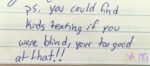 ps. you could find
kids texting if you
were blind, your too good
at that!!